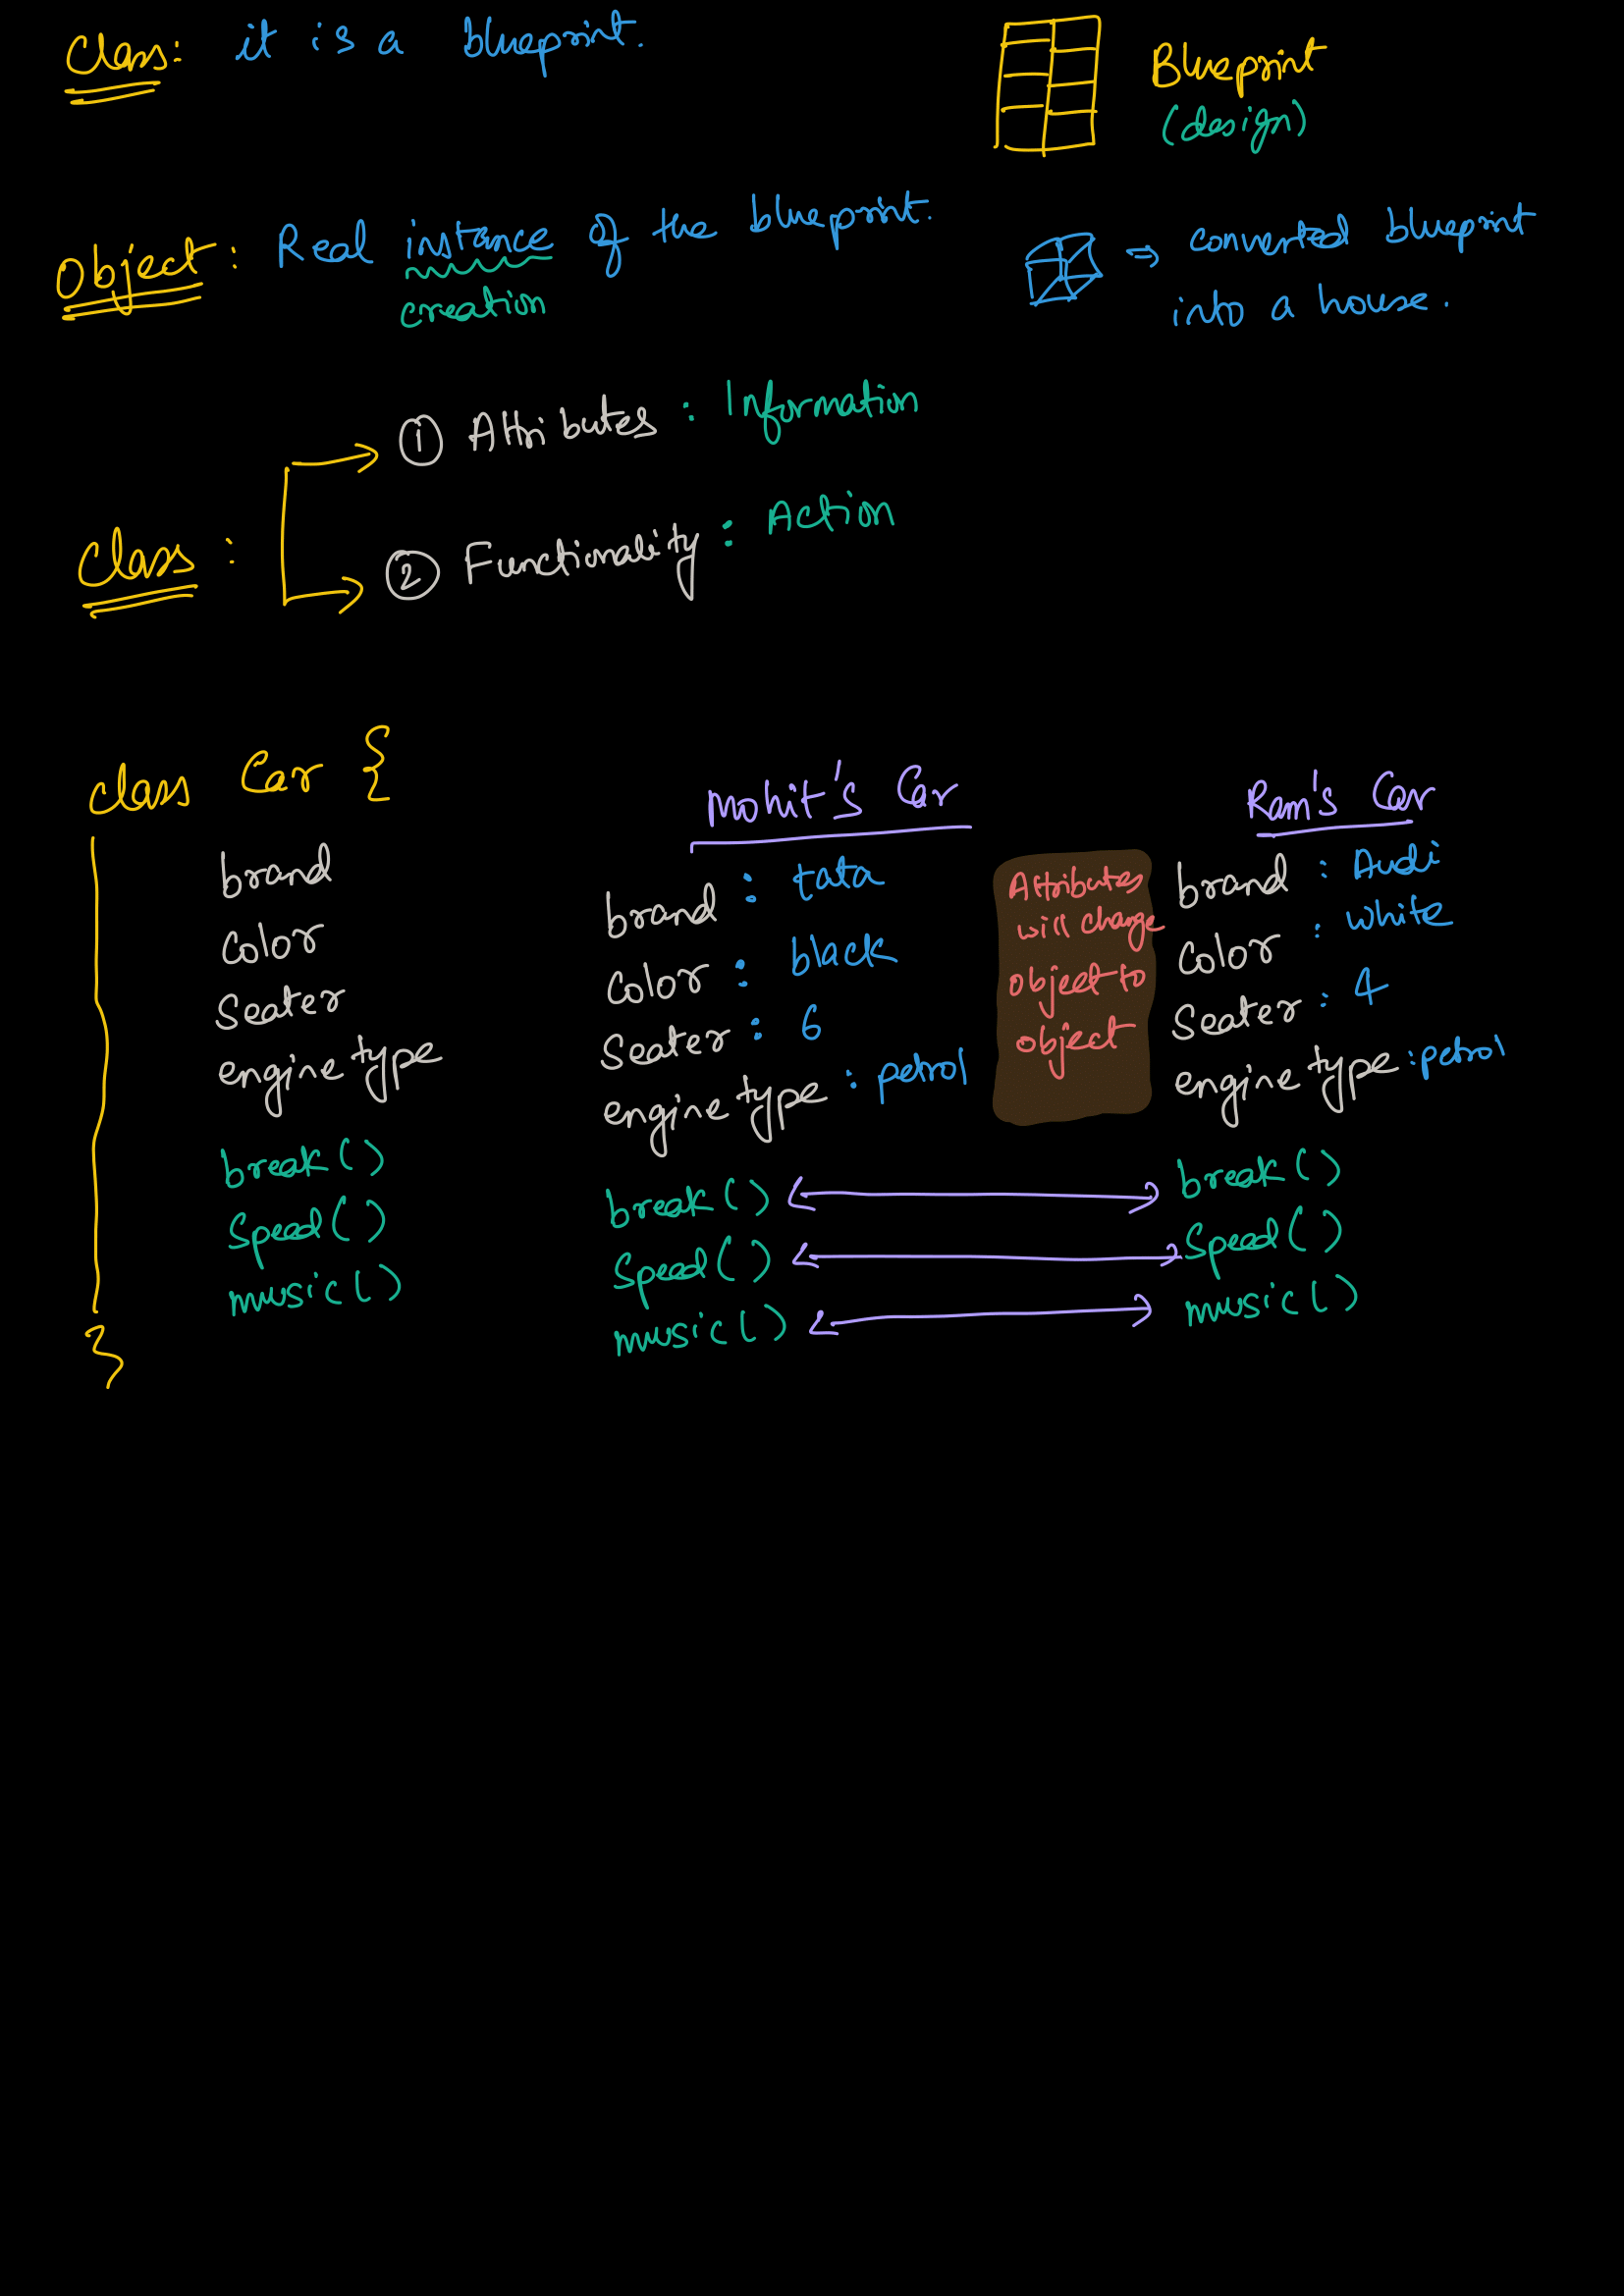 Class: it is a blueprint.
Blueprint
(design)
Object: Real instance of the blueprint.
creation
⇒ converted blueprint
into a house.
Class:
① Attributes : Information
② Functionality : Action
class Car {
brand
color
Seater
engine type
break()
Speed()
music()
}
Mohit's Car
brand : tata
color : black
Seater : 6
engine type : petrol
break()
Speed()
music()
Attributes
will change
object to
object
Ram's Car
brand : Audi
color : white
Seater : 4
engine type : petrol
break()
Speed()
music()